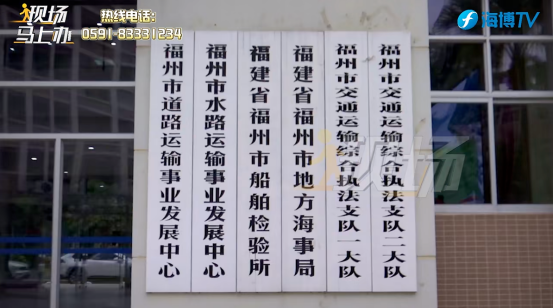 现场
马上办
热线电话:
0591 83331234
海博TV
福州市道路运输事业发展中心
福州市水路运输事业发展中心
福建省福州市船舶检验所
福建省福州市地方海事局
福州市交通运输综合执法支队一大队
福州市交通运输综合执法支队二大队
现场